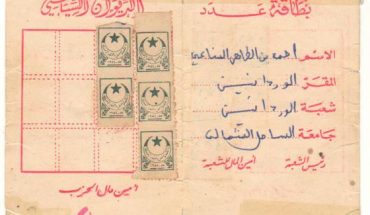 بطاقة عدد
الديوان السياسي
الاسم احمد بن الطاهر
المقر الوردانين
شعبة الوردانين
جامعة الساحل الشمالي
رئيس الشعبة امين المال للشعبة
امين مال الحزب